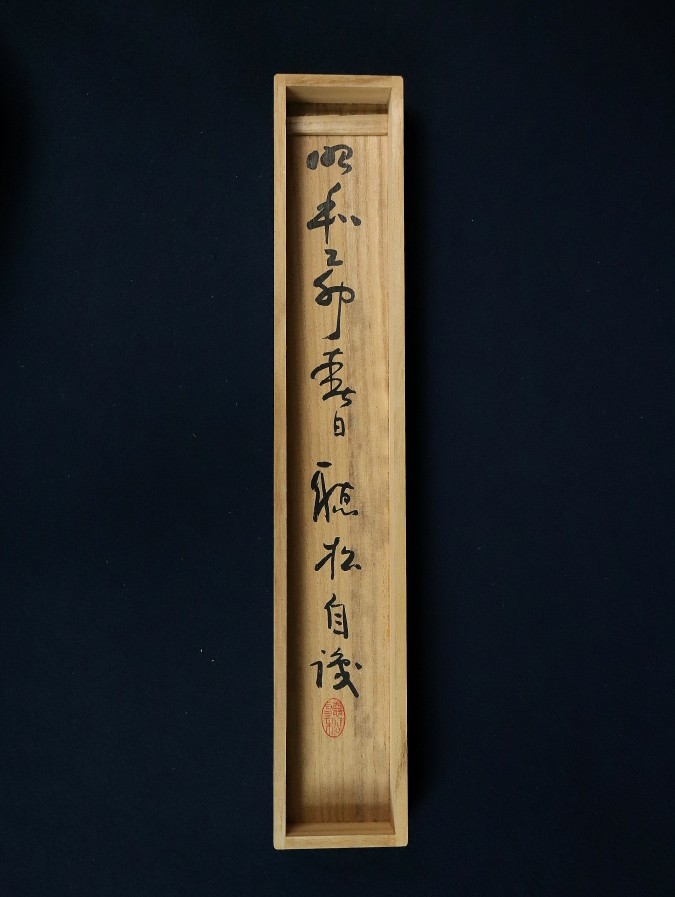 昭和乙卯春日聴松自識